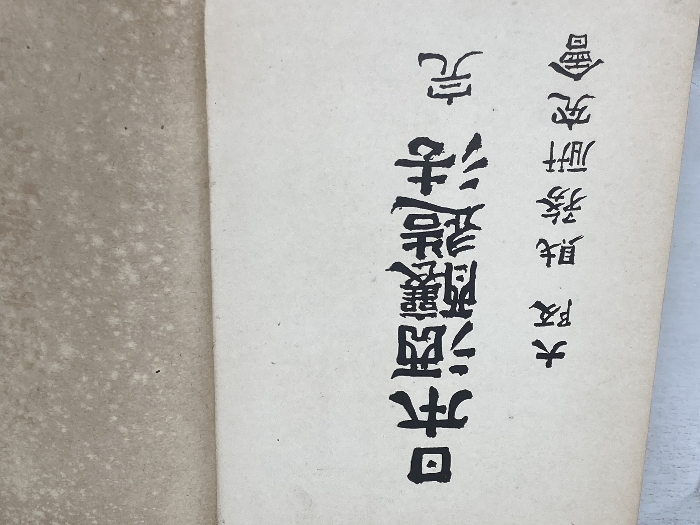 日本酒釀造法 完
大阪財務研究會